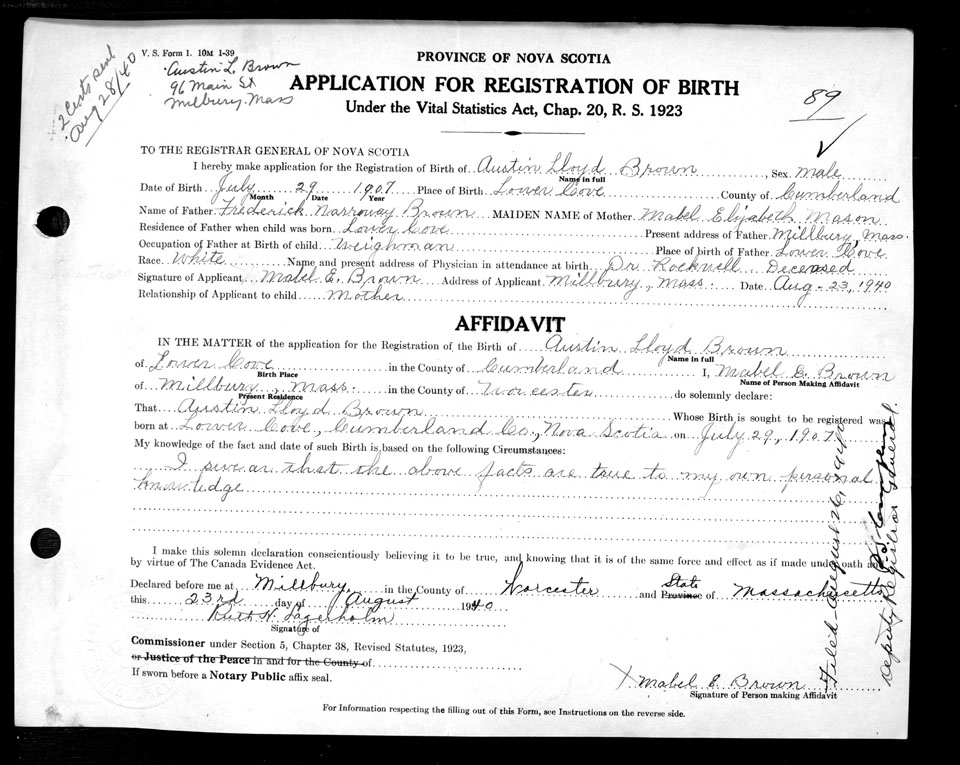 V. S. Form 1. 10M 1-39
2 Certs sent
Aug 28/40
Austin L. Brown
96 Main St
Millbury, Mass
PROVINCE OF NOVA SCOTIA
APPLICATION FOR REGISTRATION OF BIRTH
Under the Vital Statistics Act, Chap. 20, R. S. 1923
89
TO THE REGISTRAR GENERAL OF NOVA SCOTIA
I hereby make application for the Registration of Birth of Austin Lloyd Brown, Sex male
Name in full
Date of Birth July 29 1907 Place of Birth Lower Cove County of Cumberland
Month Date Year
Name of Father Frederick Narroway Brown MAIDEN NAME of Mother Mabel Elizabeth Mason
Residence of Father when child was born Lower Cove Present address of Father Millbury, Mass.
Occupation of Father at Birth of child Weighman Place of birth of Father Lower Cove
Race White Name and present address of Physician in attendance at birth Dr. Rockwell Deceased
Signature of Applicant Mabel E. Brown Address of Applicant Millbury, Mass. Date Aug-23, 1940
Relationship of Applicant to child Mother
AFFIDAVIT
IN THE MATTER of the application for the Registration of the Birth of Austin Lloyd Brown
Name in full
of Lower Cove in the County of Cumberland I, Mabel E. Brown
Birth Place Name of Person Making Affidavit
of Millbury, Mass. in the County of Worcester do solemnly declare:
Present Residence
That Austin Lloyd Brown Whose Birth is sought to be registered was
born at Lower Cove, Cumberland Co., Nova Scotia on July 29, 1907
My knowledge of the fact and date of such Birth is based on the following Circumstances:
I swear that the above facts are true to my own personal
knowledge
I make this solemn declaration conscientiously believing it to be true, and knowing that it is of the same force and effect as if made under oath and
by virtue of The Canada Evidence Act.
Declared before me at Millbury, in the County of Worcester and State Province of Massachusetts
this 23rd day of August 1940
Ruth H. Lagerholm
Signature of
Commissioner under Section 5, Chapter 38, Revised Statutes, 1923,
or Justice of the Peace in and for the County of
If sworn before a Notary Public affix seal.
X Mabel E. Brown
Signature of Person making Affidavit
For Information respecting the filling out of this Form, see Instructions on the reverse side.
Filed August 26, 1940
Deputy Registrar General.